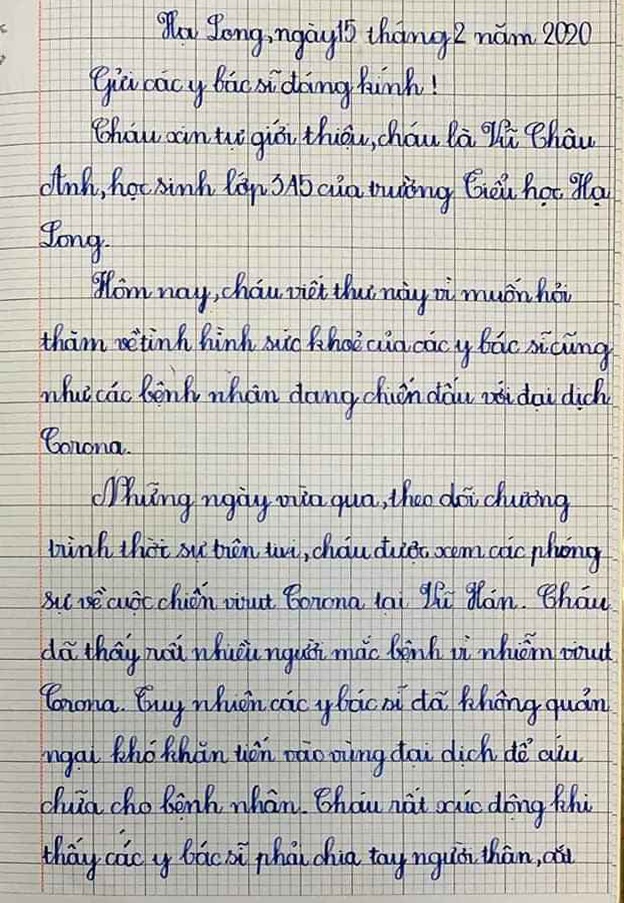 Hạ Long, ngày 15 tháng 2 năm 2020
Gửi các y bác sĩ đáng kính !
Cháu xin tự giới thiệu, cháu là Vũ Châu
Anh, học sinh lớp 3A5 của trường Tiểu học Hạ
Long.
Hôm nay, cháu viết thư này vì muốn hỏi
thăm về tình hình sức khoẻ của các y bác sĩ cũng
như các bệnh nhân đang chiến đấu với đại dịch
Corona.
Những ngày vừa qua, theo dõi chương
trình thời sự trên tivi, cháu được xem các phóng
sự về cuộc chiến virut Corona tại Vũ Hán. Cháu
đã thấy rất nhiều người mắc bệnh vì nhiễm virut
Corona. Tuy nhiên các y bác sĩ đã không quản
ngại khó khăn tiến vào vùng đại dịch để cứu
chữa cho bệnh nhân. Cháu rất xúc động khi
thấy các y bác sĩ phải chia tay người thân, cắt